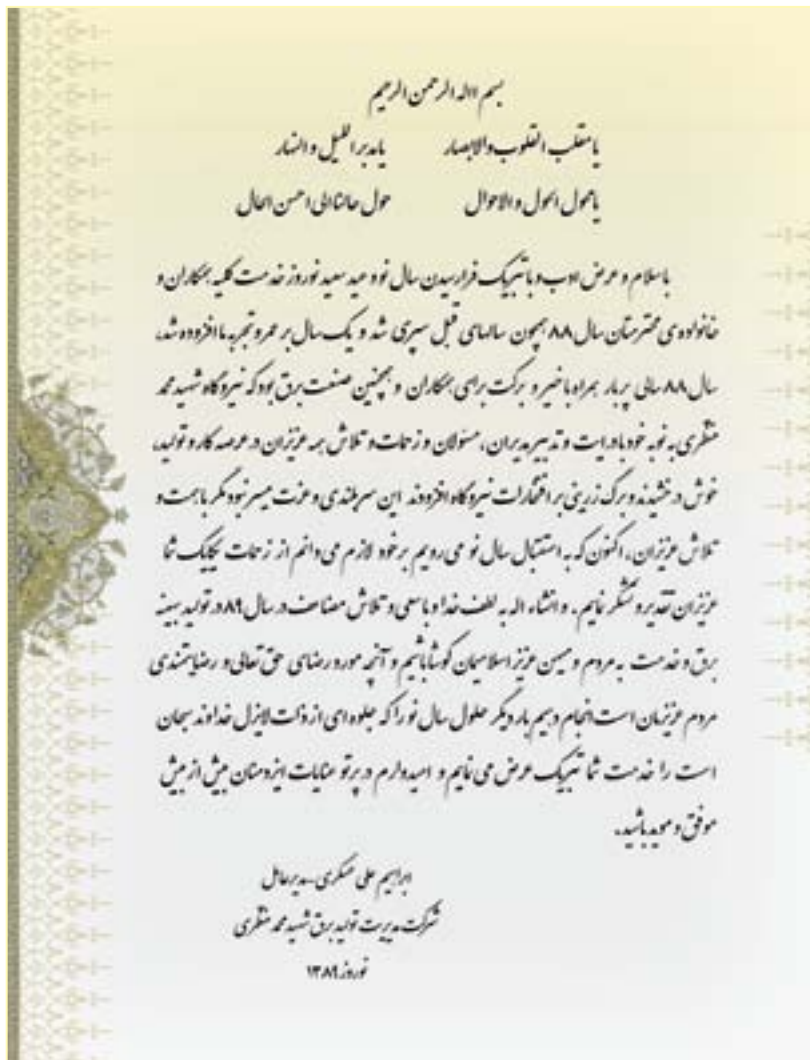 بسم الله الرحمن الرحیم
یا مقلب القلوب والابصار یا مدبر اللیل و النهار
یا محول الحول و الاحوال حول حالنا الی احسن الحال
با سلام و عرض ادب و با تبریک فرا رسیدن سال نو و عید سعید نوروز خدمت کلیه همکاران و
خانواده ی محترمتان سال ۸۸ همچون سالهای قبل سپری شد و یک سال بر عمر و تجربه ما افزوده شد،
سال ۸۸ سالی پربار همراه با خیر و برکت برای همکاران و همچنین صنعت برق بود که نیروگاه شهید محمد
منتظری به نوبه خود با درایت و تدبیر مدیران، مسئولان و زحمات و تلاش همه عزیزان در عرصه کار و تولید،
خوش درخشیدند و برگ زرینی بر افتخارات نیروگاه افزودند این سربلندی و عزت میسر نبود مگر با همت و
تلاش عزیزان، اکنون که به استقبال سال نو می رویم بر خود لازم می دانم از زحمات یکایک شما
عزیزان تقدیر و تشکر نمایم. و انشاء اله به لطف خدا و با سعی و تلاش مضاعف در سال ۸۹ در تولید بهینه
برق و خدمت به مردم و میهن عزیز اسلامیمان کوشا باشیم و آنچه مورد رضای حق تعالی و رضایتمندی
مردم عزیزمان است انجام دهیم بار دیگر حلول سال نو را که جلوه ای از ذات لایزل خداوند سبحان
است را خدمت شما تبریک عرض می نمایم و امیدوارم در پرتو عنایات ایزد منان بیش از پیش
موفق و موید باشید.
ابراهیم علی عسکری-مدیرعامل
شرکت مدیریت تولید برق شهید محمد منتظری
نوروز ۱۳۸۹